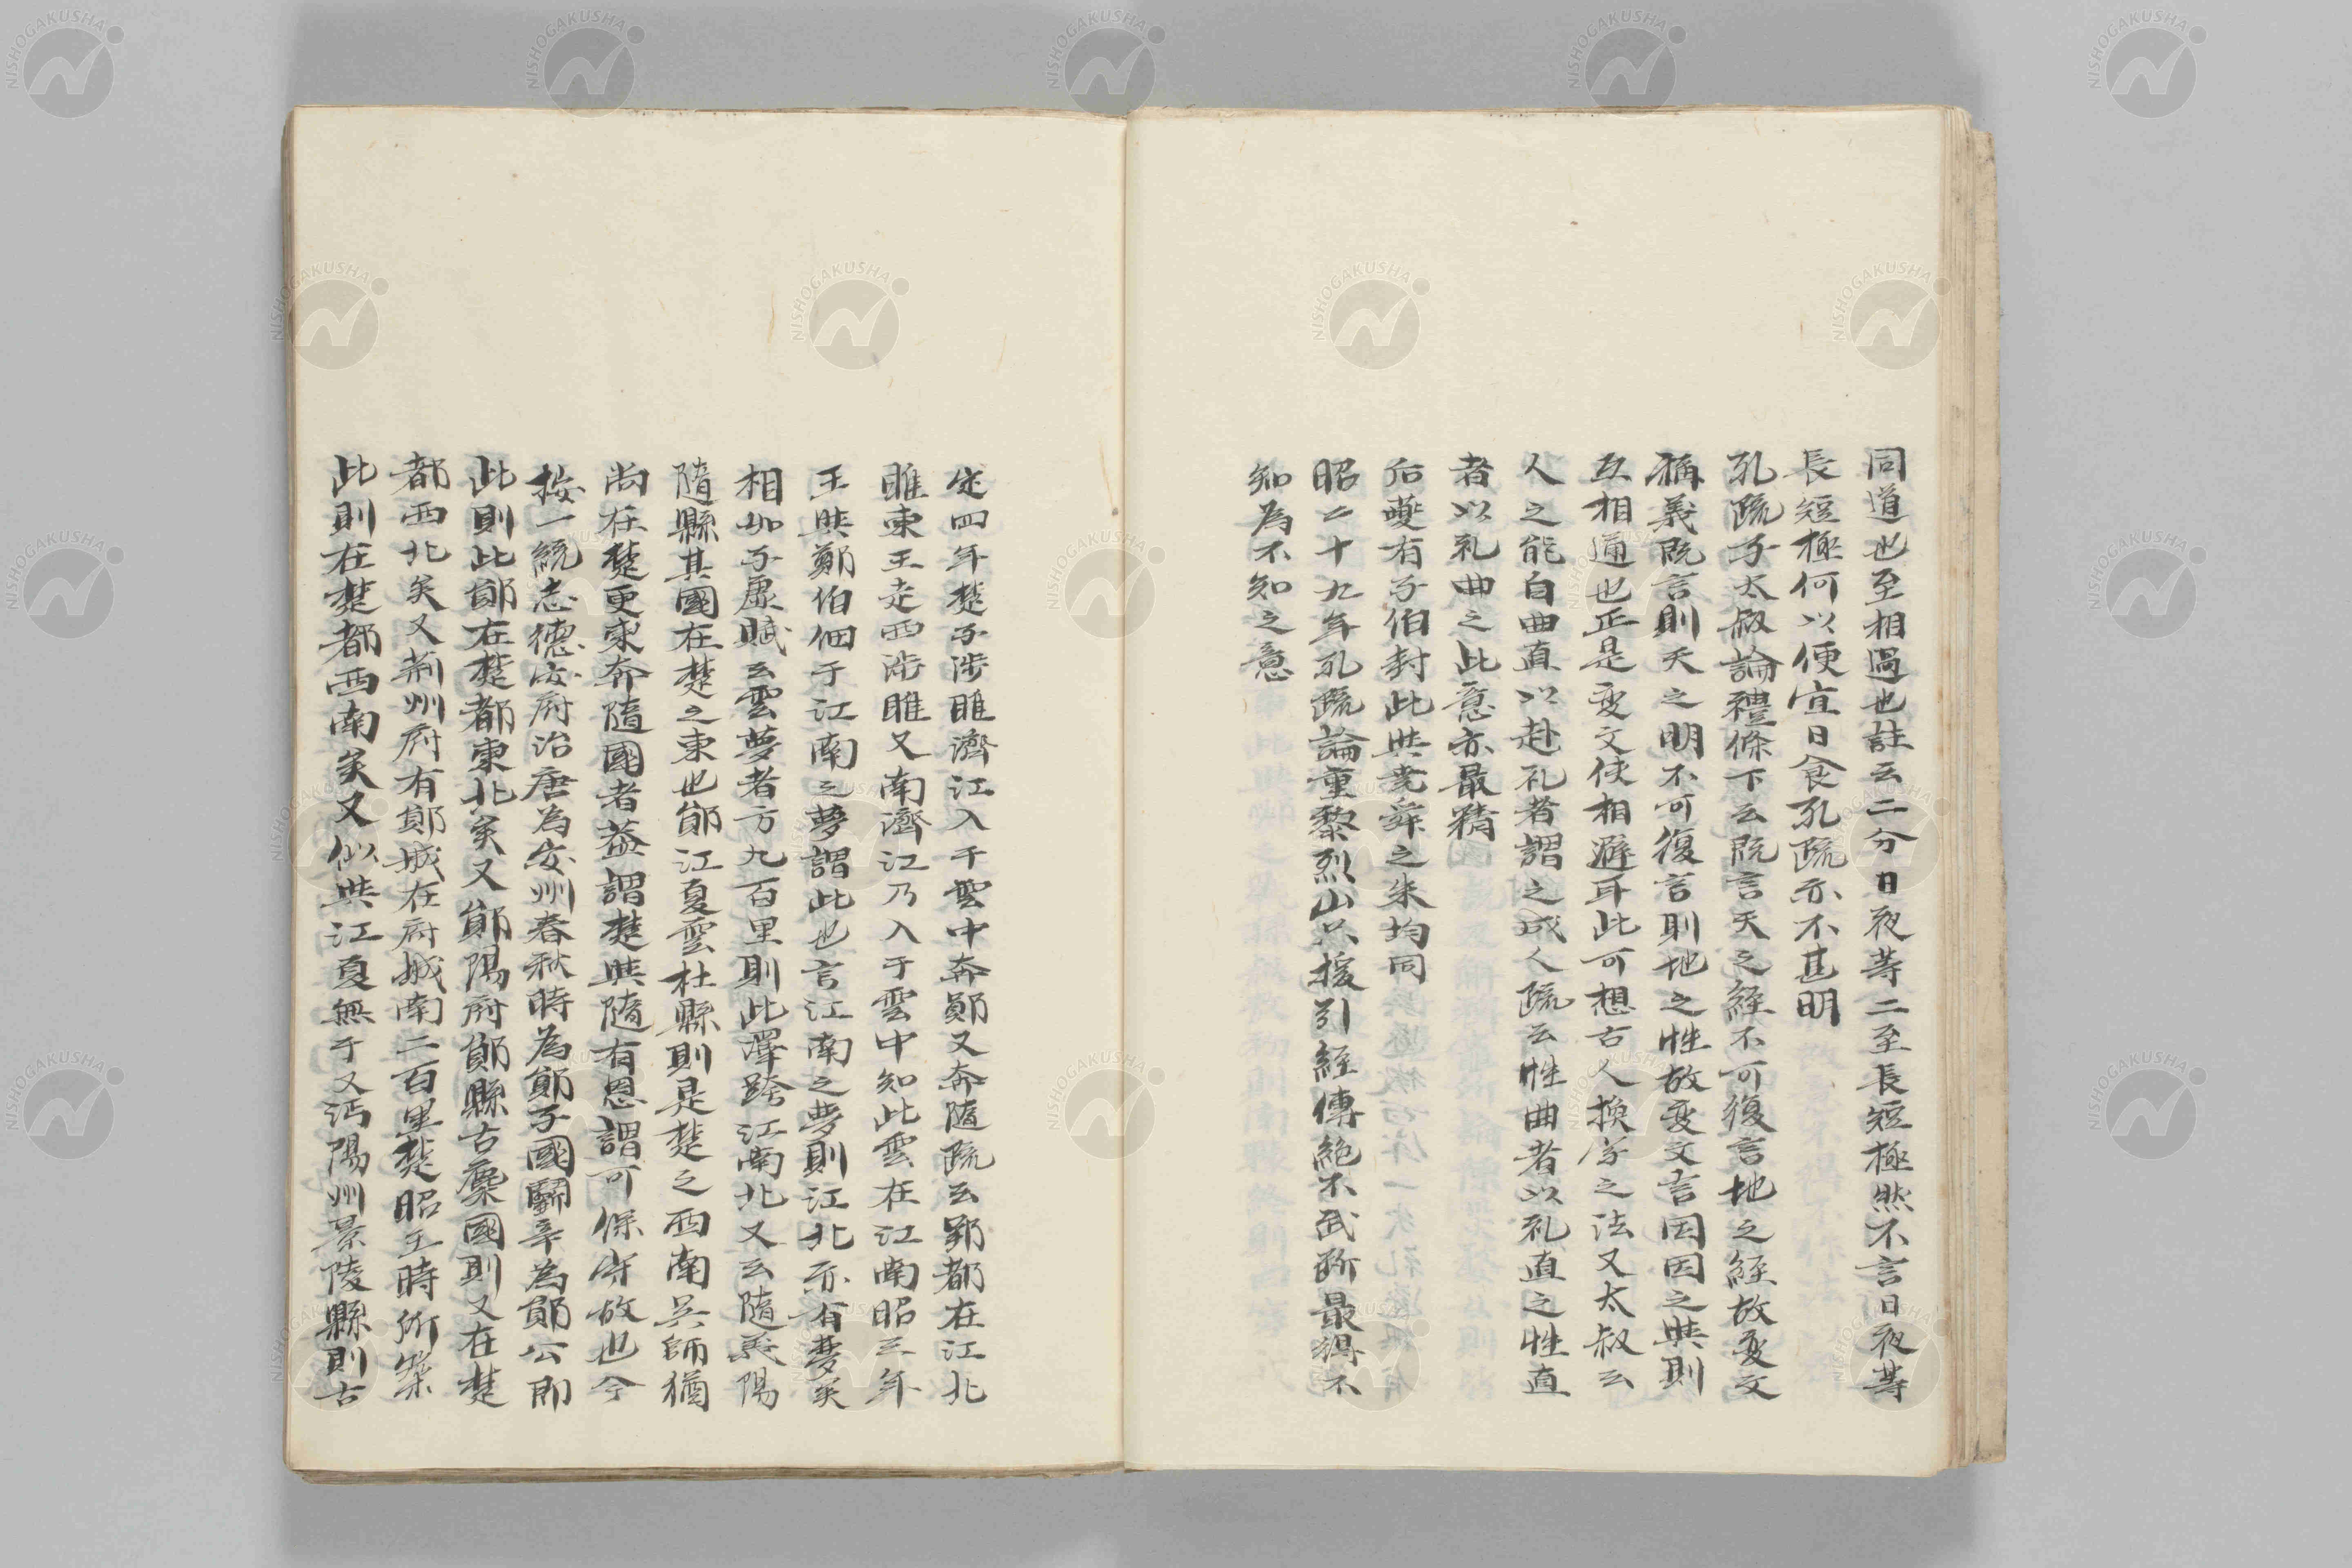 同道也至相過也註云二分日夜等二至長短極然不言日夜等
長短極何以便宜日食孔疏亦不甚明
孔疏子太叔論禮條下云既言天之経不可復言地之経故変文
稱義既言則天之明不可復言則地之性故変文言因因之與則
互相通也正是変文使相避耳此可想古人換字之法又太叔云
人之能自曲直以赴礼者謂之成人疏云性曲者以礼直之性直
者以礼曲之此意亦最精
后夔有子伯封此與堯舜之朱均同
昭二十九年孔疏論重黎烈山只援引経傳絶不武断最得不
知為不知之意
定四年楚子渉睢濟江入于雲中奔鄖又奔隨疏云郢都在江北
睢東王走西渉睢又南濟江乃入于雲中知此雲在江南昭三年
王與鄭伯佃于江南之夢謂此也言江南之夢則江北亦有夢矣
相如子虚賦云雲夢者方九百里則此澤跨江南北又云隨義陽
隨縣其國在楚之東也鄖江夏雲杜縣則是楚之西南呉師猶
尚在楚更東奔隨國者益謂楚與隨有恩謂可保守故也今
按一統志徳安府治唐為安州春秋時為鄖子國鬪辛為鄖公即
此則此鄖在楚都東北矣又鄖陽府鄖縣古麋國則又在楚
都西北矣又荊州府有鄖城在府城南二百里楚昭王時所築
此則在楚都西南矣又似與江夏無于又沔陽州景陵縣則古